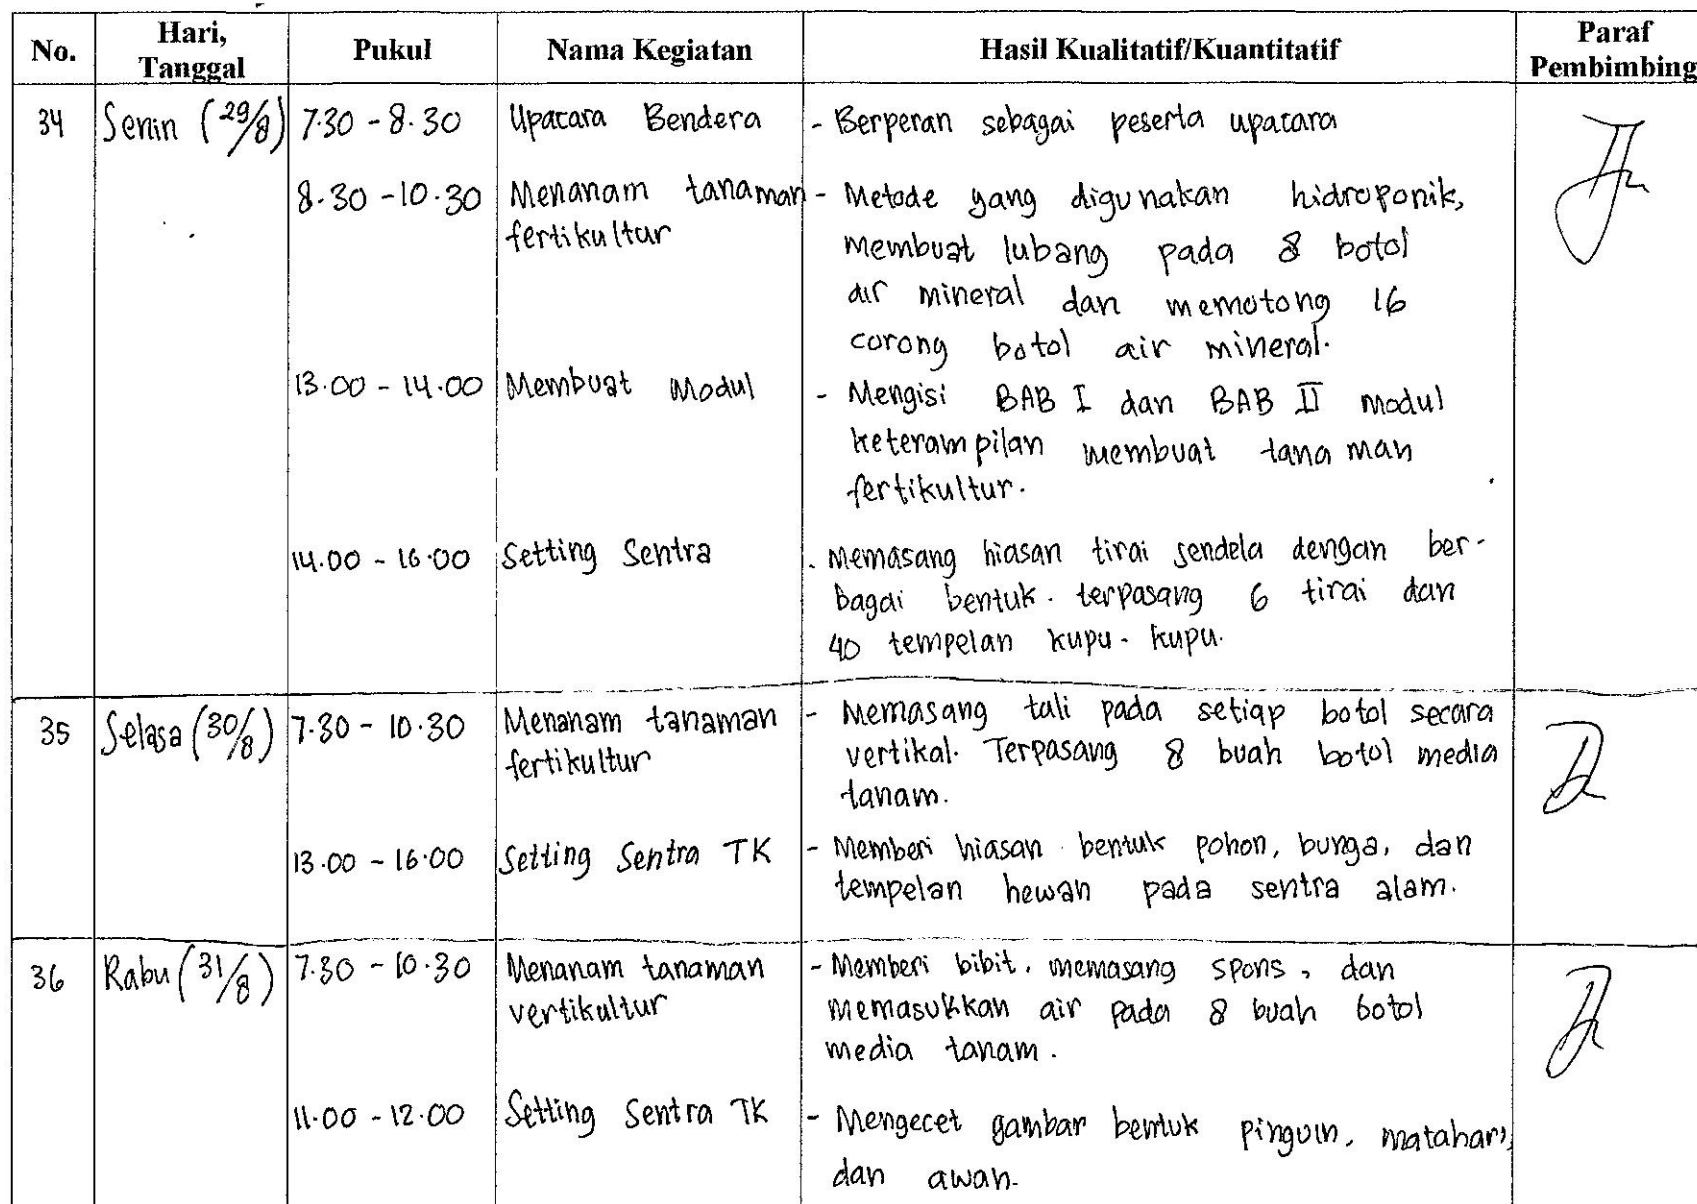 No. Hari, Tanggal Pukul Nama Kegiatan Hasil Kualitatif/Kuantitatif Paraf Pembimbing
34 Senin (29/8) 7.30 - 8.30 Upacara Bendera - Berperan sebagai peserta upacara
8.30 - 10.30 Menanam tanaman - Metode yang digunakan hidroponik,
fertikultur membuat lubang pada 8 botol
air mineral dan memotong 16
corong botol air mineral.
13.00 - 14.00 Membuat Modul - Mengisi BAB I dan BAB II modul
keterampilan membuat tanaman
fertikultur.
14.00 - 16.00 Setting Sentra - Memasang hiasan tirai jendela dengan ber-
bagai bentuk. terpasang 6 tirai dan
40 tempelan kupu-kupu.
35 Selasa (30/8) 7.30 - 10.30 Menanam tanaman - Memasang tali pada setiap botol secara
fertikultur vertikal. Terpasang 8 buah botol media
tanam.
13.00 - 16.00 Setting Sentra TK - Memberi hiasan bentuk pohon, bunga, dan
tempelan hewan pada sentra alam.
36 Rabu (31/8) 7.30 - 10.30 Menanam tanaman - Memberi bibit, memasang spons, dan
vertikultur memasukkan air pada 8 buah botol
media tanam.
11.00 - 12.00 Setting Sentra TK - Mengecet gambar bentuk pinguin, matahari,
dan awan.